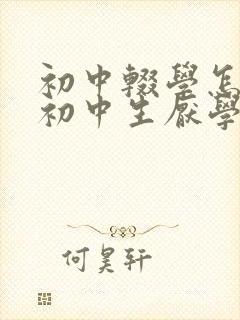 初中輟學怎
初中生厭學
何昊軒